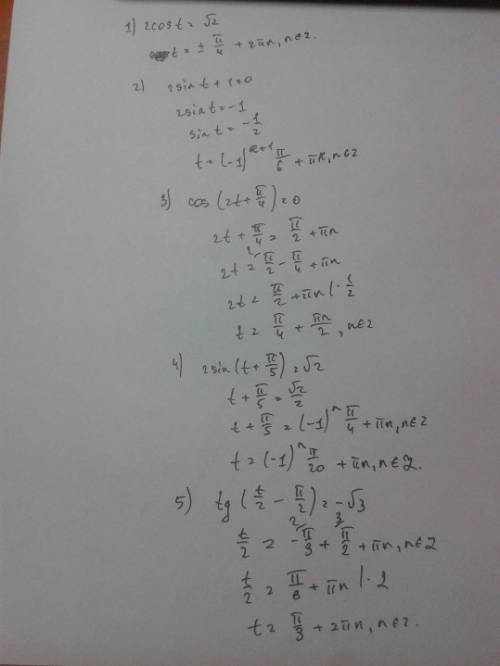 1) 2cost = √2
t = ± π/4 + 2πn, n∈z.
2) 2sin t + 1 = 0
2sin t = -1
sin t = -1/2
t = (-1)^(n+1) π/6 + πn, n∈z
3) cos (2t + π/4) = 0
2t + π/4 = π/2 + πn
2t = π/2 - π/4 + πn
2t = π/2 + πn | · 1/2
t = π/4 + πn/2, n∈z
4) 2sin (t + π/5) = √2
t + π/5 = √2/2
t + π/5 = (-1)^n π/4 + πn, n∈z
t = (-1)^n π/20 + πn, n∈Z.
5) tg (t/2 - π/2) = -√3
t/2 = -π/3 + π/2 + πn, n∈Z
t/2 = π/6 + πn | · 2
t = π/3 + 2πn, n∈z.